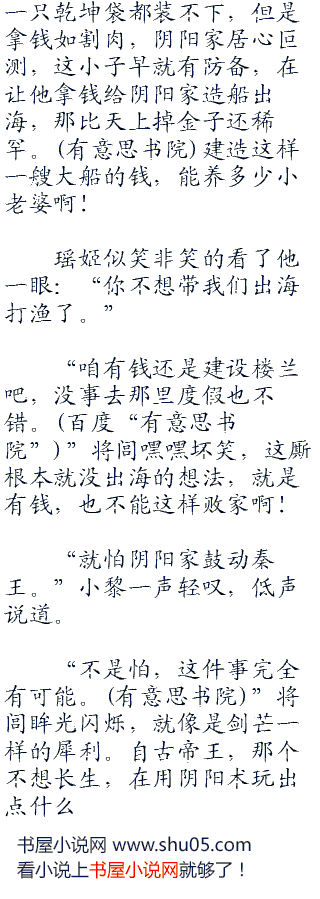 一只乾坤袋都装不下，但是
拿钱如割肉，阴阳家居心叵
测，这小子早就有防备，在
让他拿钱给阴阳家造船出
海，那比天上掉金子还稀
罕。(有意思书院)建造这样
一艘大船的钱，能养多少小
老婆啊！
瑶姬似笑非笑的看了他
一眼：“你不想带我们出海
打渔了。”
“咱有钱还是建设楼兰
吧，没事去那里度假也不
错。(百度“有意思书
院”)”将闾嘿嘿坏笑，这厮
根本就没出海的想法，就是
有钱，也不能这样败家啊！
“就怕阴阳家鼓动秦
王。”小黎一声轻叹，低声
说道。
“不是怕，这件事完全
有可能。(有意思书院)”将
闾眸光闪烁，就像是剑芒一
样的犀利。自古帝王，那个
不想长生，在用阴阳术玩出
点什么
书屋小说网 www.shu05.com
看小说上书屋小说网就够了！